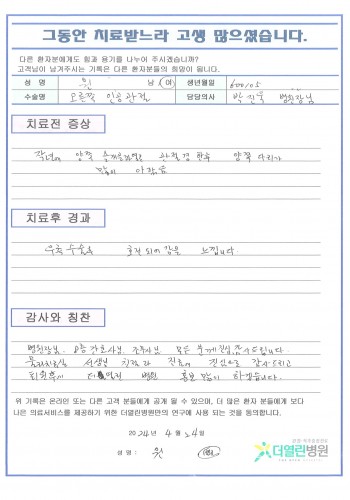 그동안 치료받느라 고생 많으셨습니다.
다른 환자분에게도 힘과 용기를 나누어 주시겠습니까?
고객님이 남겨주시는 기록은 다른 환자분들의 희망이 됩니다.
성 명 원 남 / 여 생년월일 600105
수술명 오른쪽 인공관절 담당의사 박진욱 병원장님
치료전 증상
작년에 양쪽 관절경 한후 양쪽 다리가
많이 아팠음
치료후 경과
우측 수술후 호전 되어감을 느낍니다
감사와 칭찬
병원장님, 간호사님, 모든 분께 진심 감사드립니다.
물리치료실 선생님 진심으로 감사드리고
퇴원후에 더열린 병원 홍보 많이 하겠습니다.
위 기록은 온라인 또는 다른 고객 분들에게 공개 될 수 있으며, 더 많은 환자 분들에게 보다
나은 의료서비스를 제공하기 위한 더열린병원만의 연구에 사용 되는 것을 동의합니다.
2024년 4월 24일
성 명 : 원
더열린병원